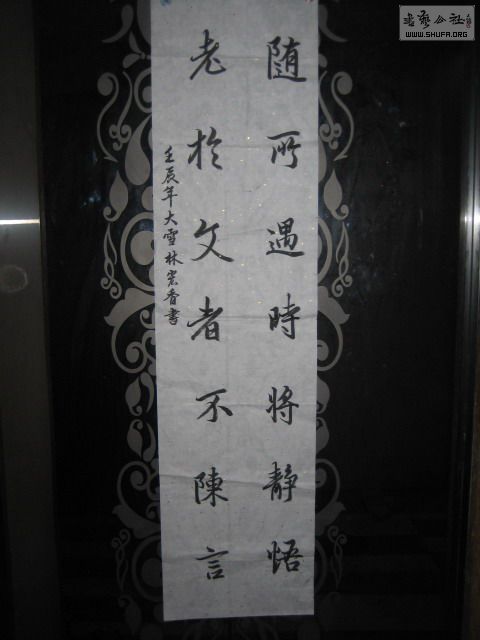 随所遇時將静悟
老於文者不陳言
壬辰年大雪林宏香書
書藝公社
WWW.SHUFA.ORG